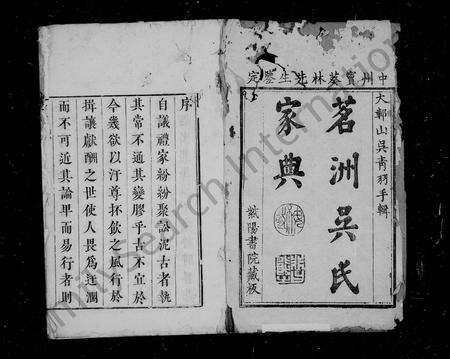 中州竇葵林先生鑒定
大鄣山吳青羽手輯
茗洲吳氏
家典
紫陽書院藏板
序
自議禮家紛紛聚訟泥古者執
其常不通其變膠乎古不宜於
今幾欲以汙尊抔飲之風行於
揖讓獻酬之世使人畏為迂濶
而不可近其論卑而易行者則